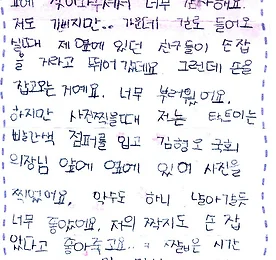 너무 감사해요.
저도 기뻐지만.. 가운데 길로 들어오
실때 제 옆에 있던 친구들이 손 잡
을 거라고 뛰어 갔데요 그런데 손을
잡고와는 거예요. 너무 부러웠어요.
하지만 사진찍을때 저는
빨간색 점퍼를 입고 김형오 국회
의장님 앞에 옆에 있어 사진을
찍었어요. 악수도 하니 날아갈듯
너무 좋았어요. 저의 짝지도 손 잡
었다고 좋아죽고요.. 짧은 시간